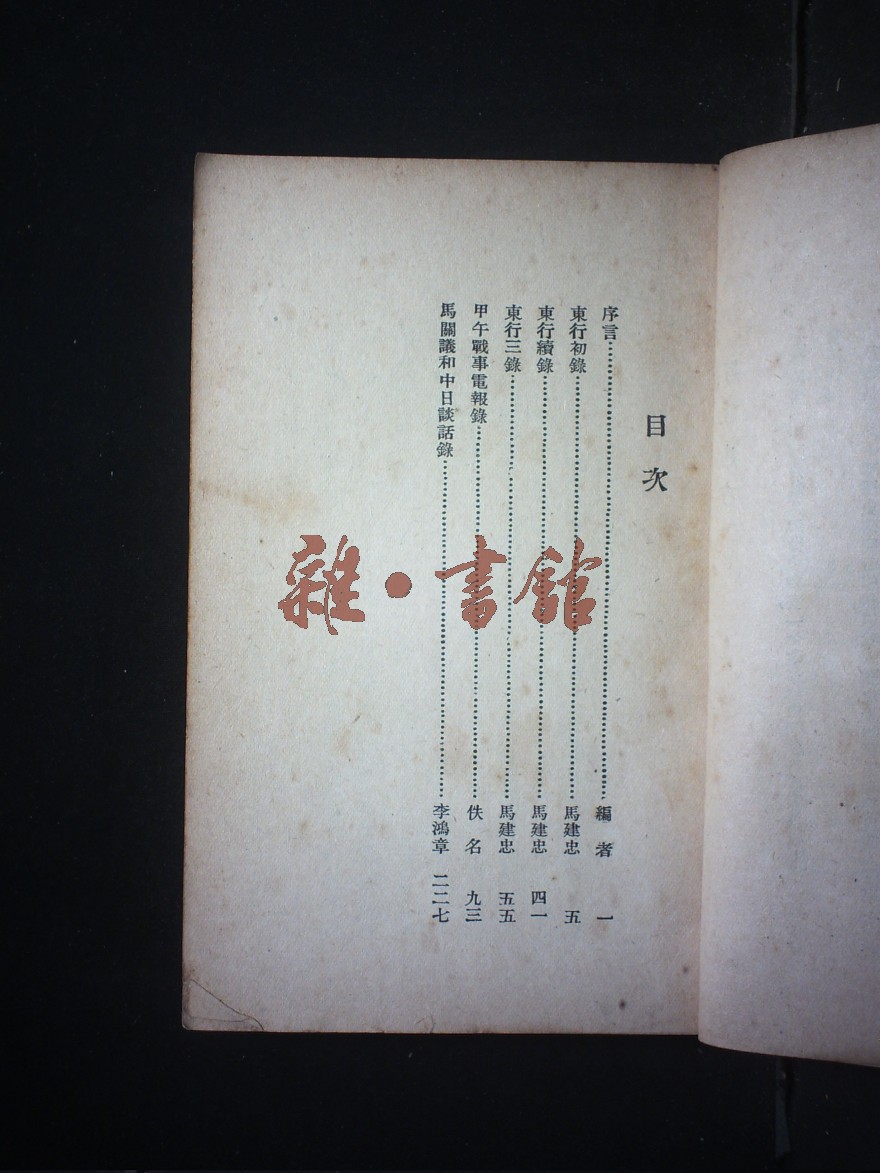 目次
序言……編者 一
東行初錄……馬建忠 五
東行續錄……馬建忠 四一
東行三錄……馬建忠 五五
甲午戰事電報錄……佚名 九三
馬關議和中日談話錄……李鴻章 二二七
雜·書館